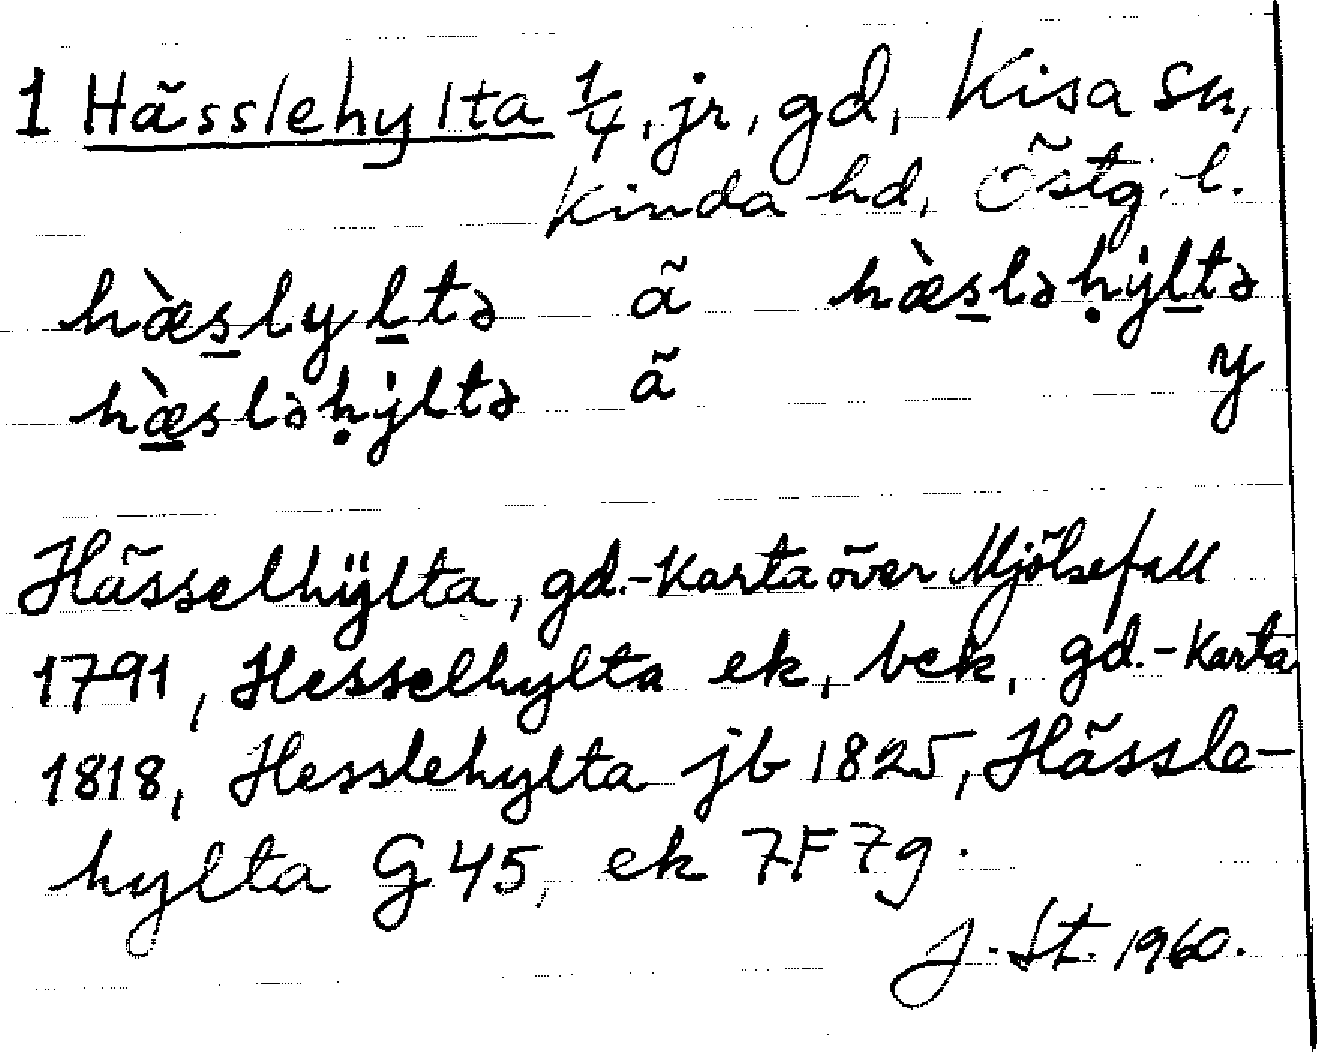 1 Hässlehylta 1/4, jr, gd, Kisa sn,
Kinda hd, Östg. l.
hæ̀s̲lyl̲tə ã hæ̀s̲ləḥẏl̲tə
hæ̲̀sləḥẏltə ã y
Hässelhÿlta, gd.-Karta över Mjölsefall
1791, Hesselhylta ek, bek, gd.-Karta
1818, Hesslehylta jb 1825, Hässle-
hylta G 45, ek 7F 7g.
J. St. 1960.